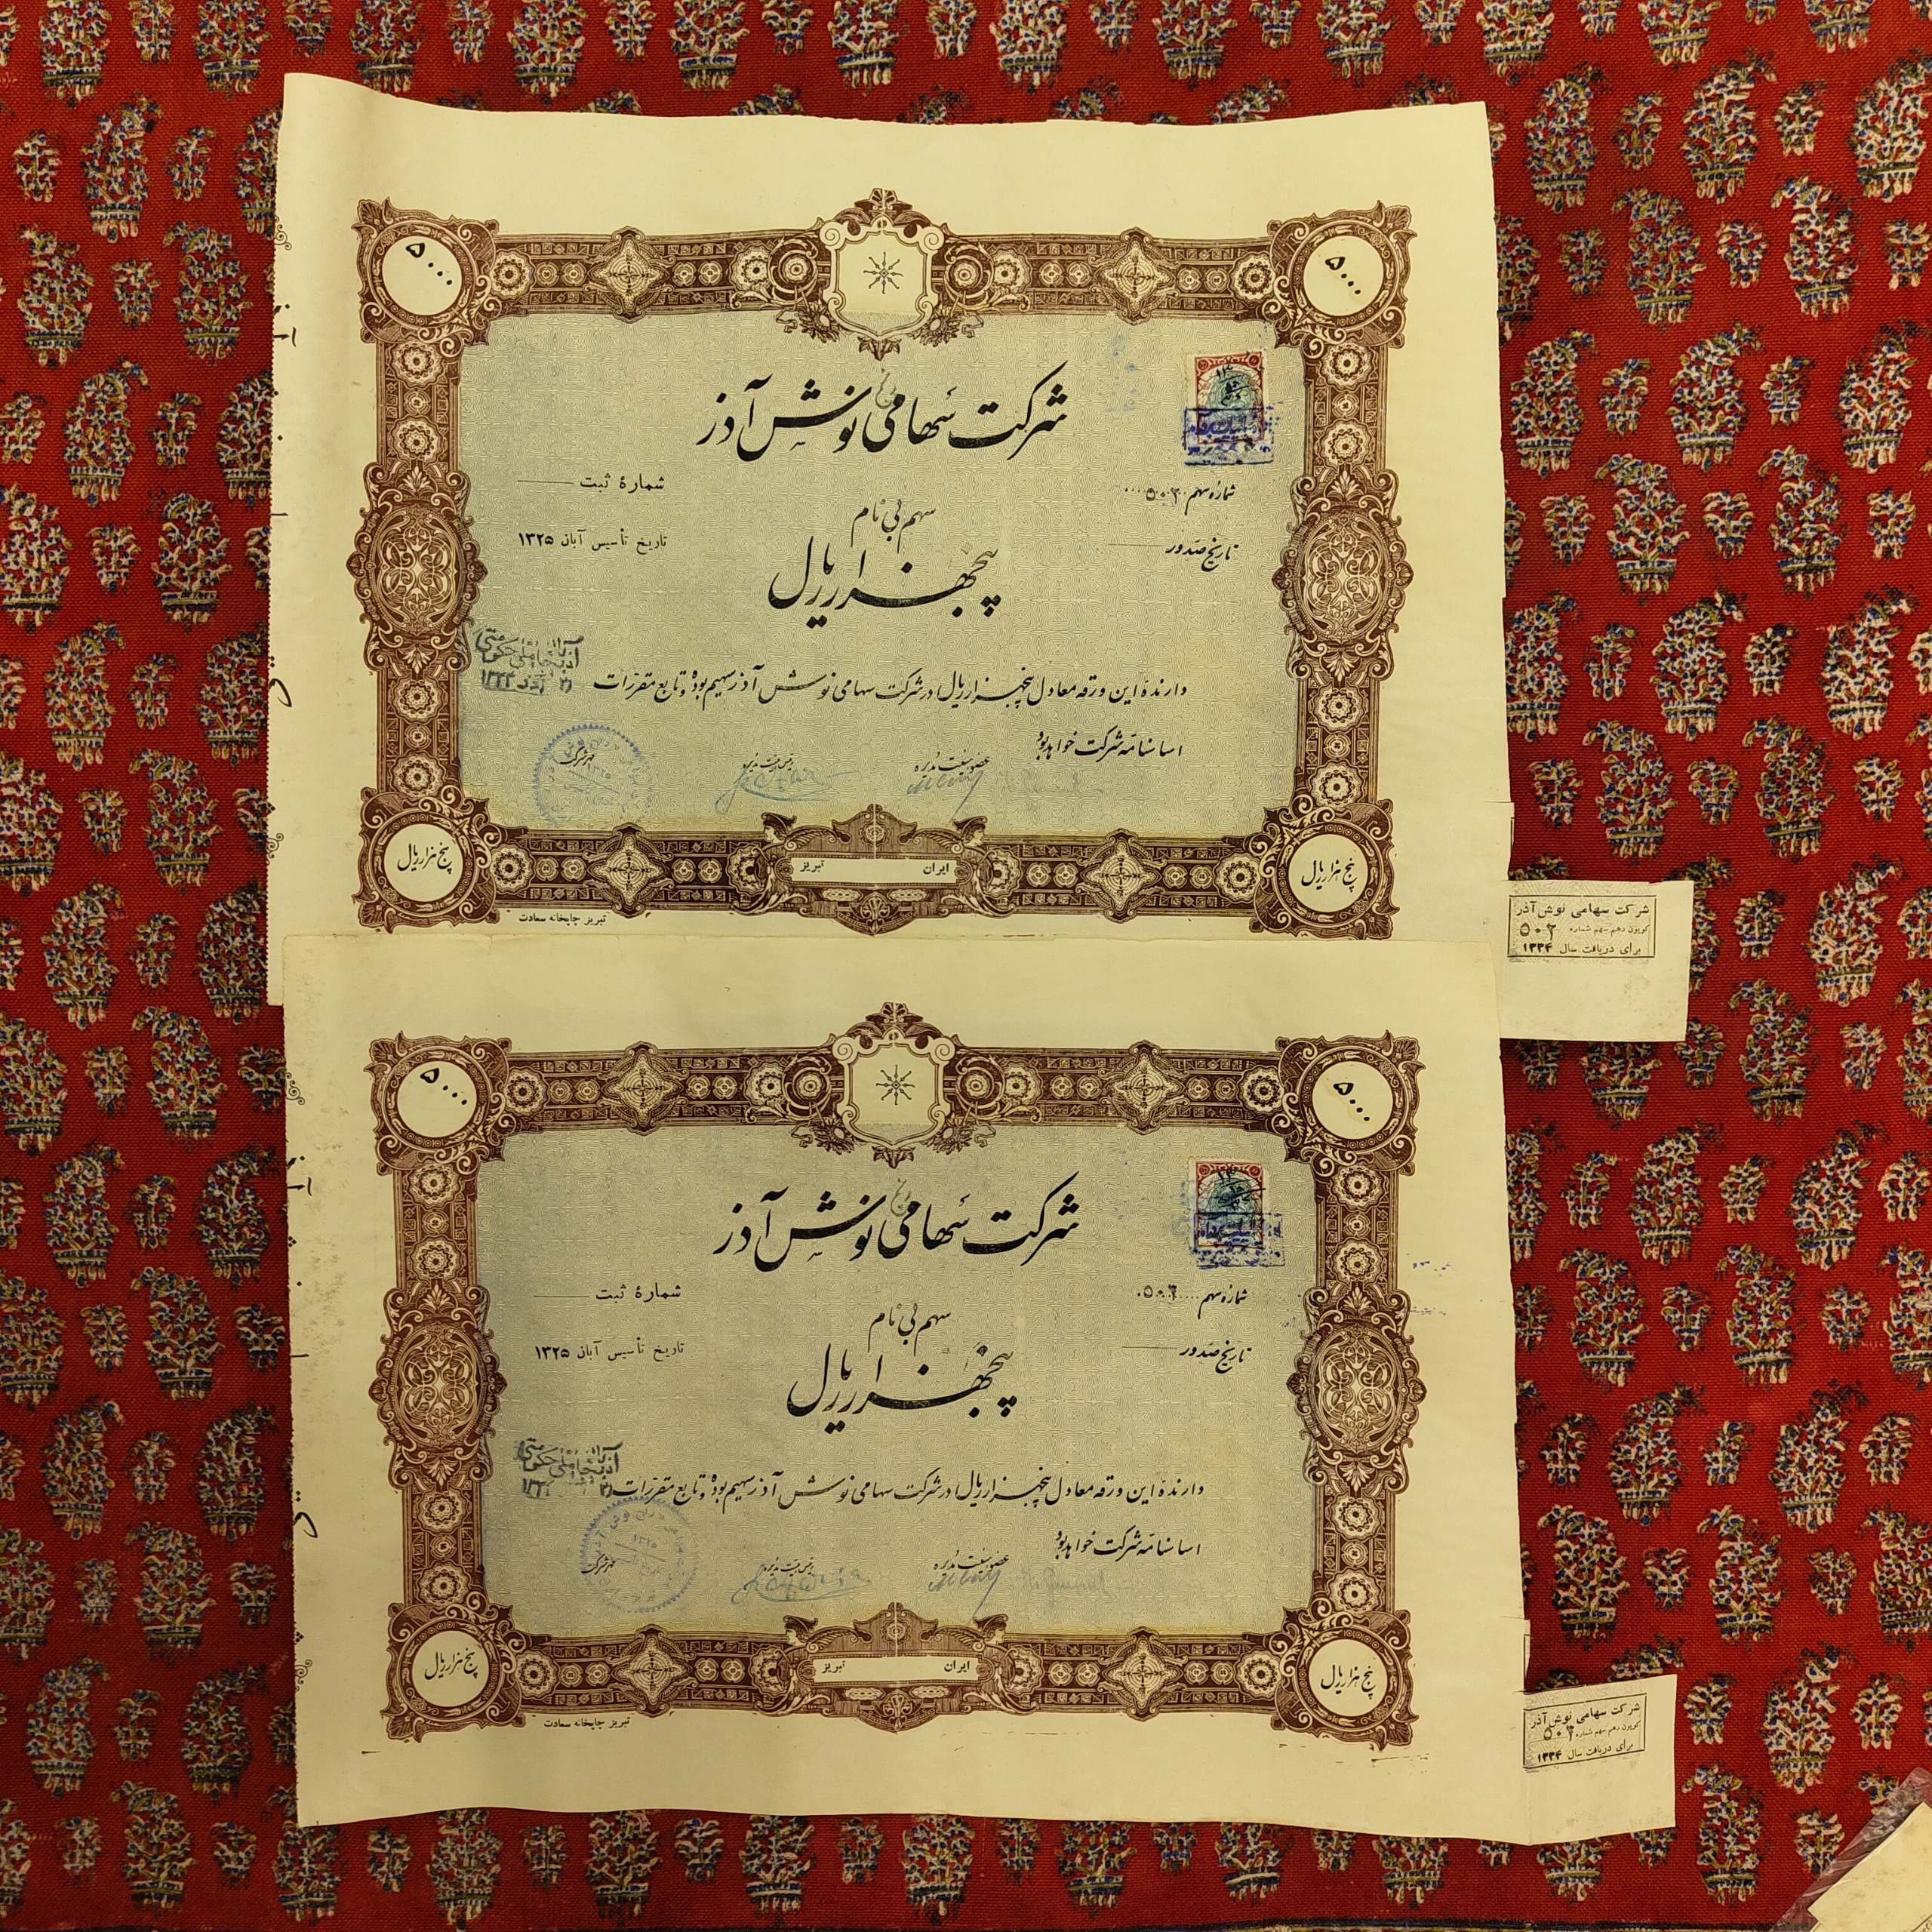 ۵۰۰۰
۵۰۰۰
شرکت سهامی نوش آذر
شمارهٔ سهم ۵۰۲
شمارهٔ ثبت
سهم بی نام
تاریخ صدور
تاریخ تأسیس آبان ۱۳۲۵
پنجهزار ریال
دارندهٔ این ورقه معادل پنجهزار ریال در شرکت سهامی نوش آذر سهیم بوده و تابع مقررات
اساسنامه شرکت خواهد بود
عضو هیئت مدیره
رئیس هیئت مدیره
مهر شرکت
پنج هزار ریال
ایران
تبریز
پنج هزار ریال
تبریز چاپخانه سعادت
شرکت سهامی نوش آذر
کوپون دهم سهم شماره ۵۰۲
برای دریافت سال ۱۳۳۴
۵۰۰۰
۵۰۰۰
شرکت سهامی نوش آذر
شمارهٔ سهم
شمارهٔ ثبت
سهم بی نام
تاریخ صدور
تاریخ تأسیس آبان ۱۳۲۵
پنجهزار ریال
دارندهٔ این ورقه معادل پنجهزار ریال در شرکت سهامی نوش آذر سهیم بوده و تابع مقررات
اساسنامه شرکت خواهد بود
عضو هیئت مدیره
رئیس هیئت مدیره
مهر شرکت
پنج هزار ریال
ایران
تبریز
پنج هزار ریال
تبریز چاپخانه سعادت
شرکت سهامی نوش آذر
کوپون دهم سهم شماره
برای دریافت سال ۱۳۳۴